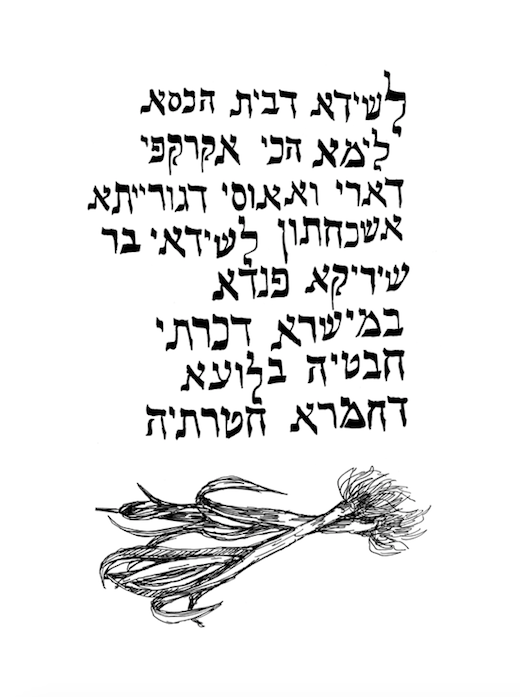 לשידא דבית הכסא
לימא הכי אקרקפי
דארי ואאוסי דגורייתא
אשכחתון לשידאי בר
שיריקא פנדא
במישרא דכרתי
חבטיה בלועא
דחמרא חטרתיה